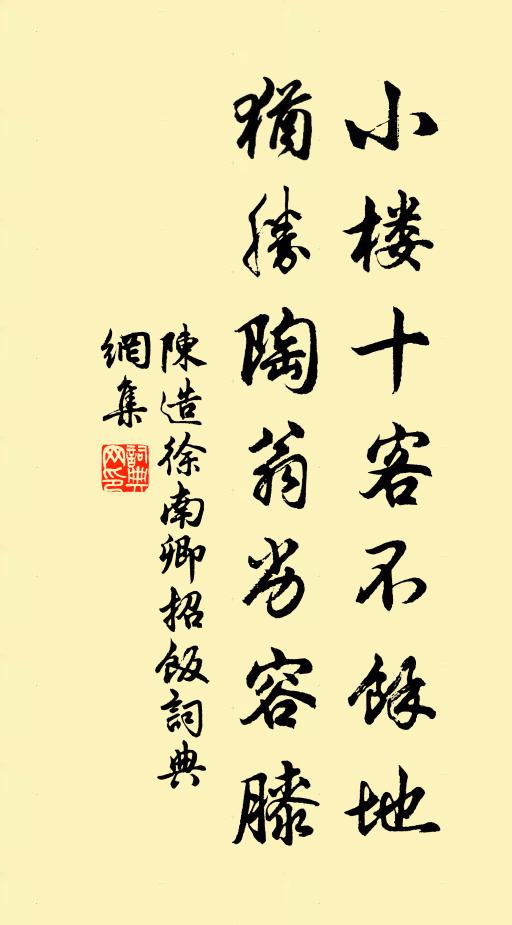 小楼十客不餘地
猶勝陶翁劣容膝
陳造徐南卿招飯詞典
網集
詞典網印